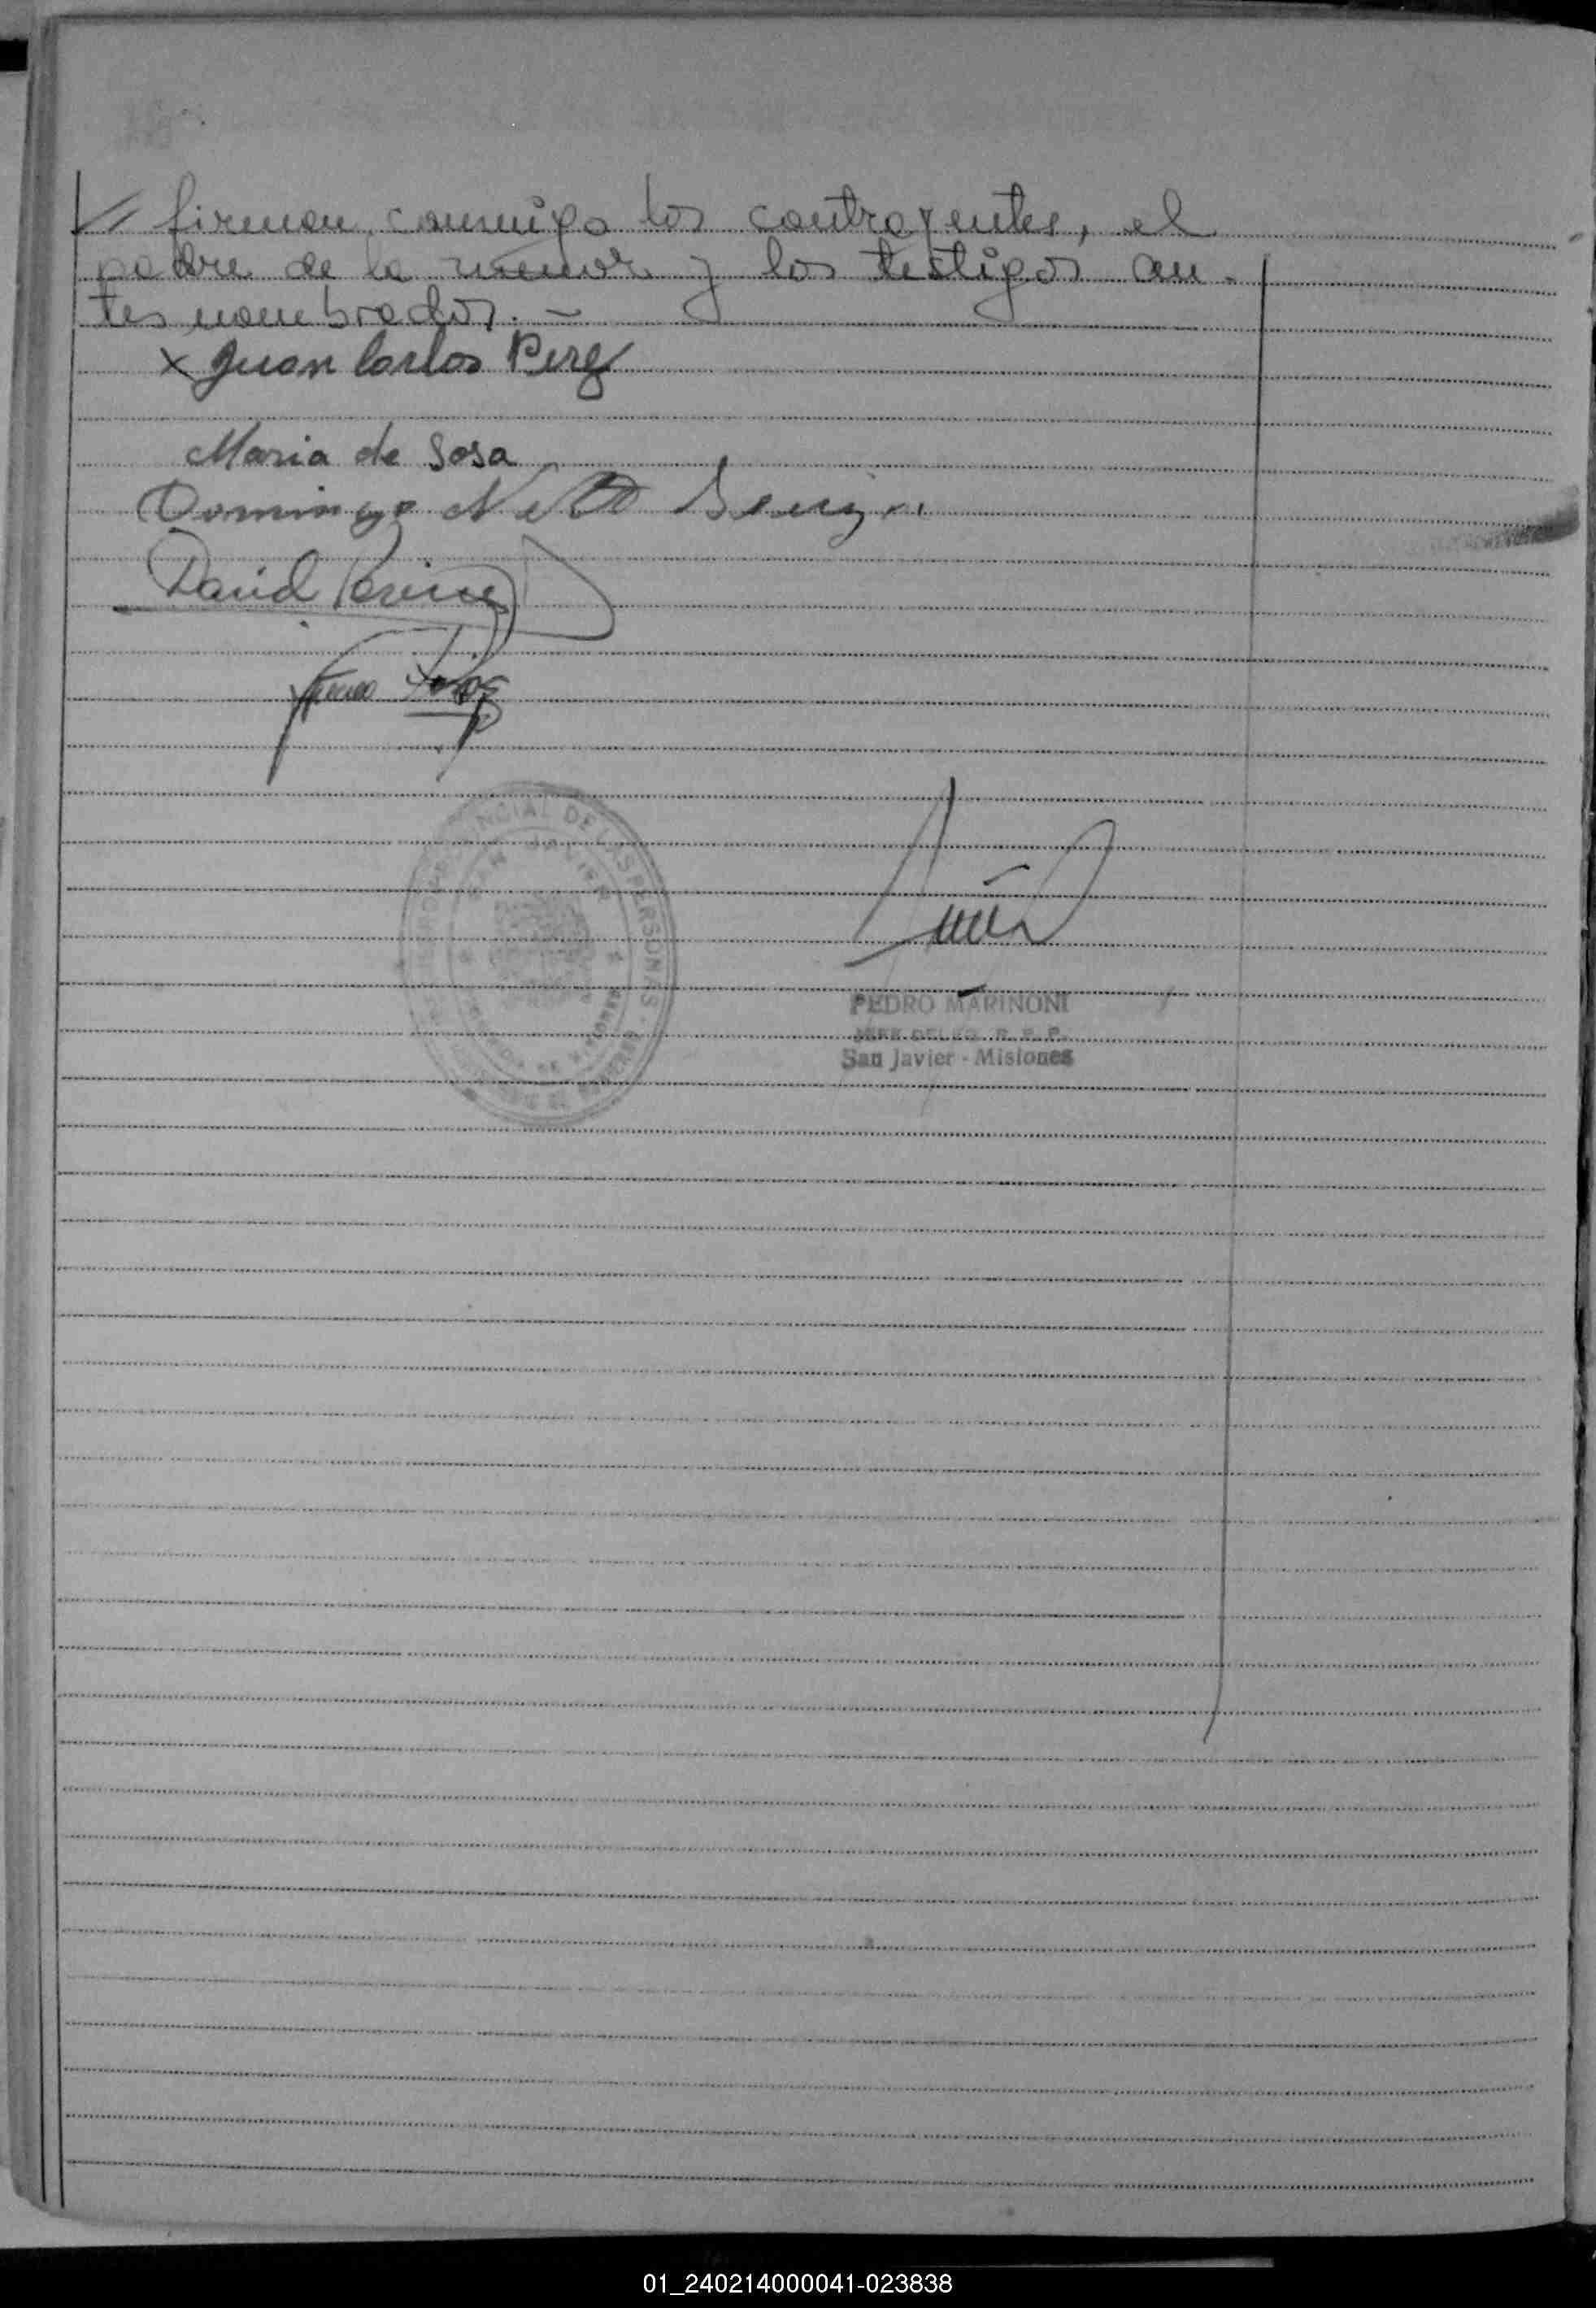 // firman conmigo los contrayentes, el
padre de la menor y los testigos an-
tes nombrados.-
x Juan Carlos Perez
Maria de Sosa
Domingo Nett
David
PROVINCIAL DE LAS PERSONAS
SAN JAVIER
PEDRO MARINONI
JEFE DELEG. R. P. P.
San Javier - Misiones
01_240214000041-023838